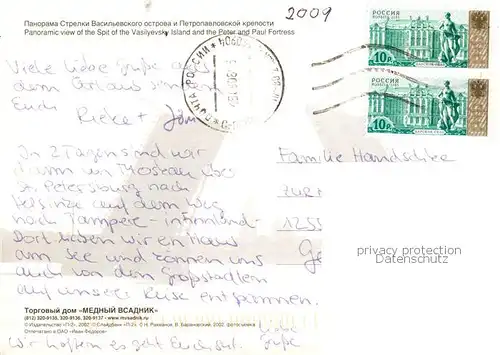 Панорама Стрелки Васильевского острова и Петропавловской крепости
Panoramic view of the Spit of the Vasilyevsky Island and the Peter and Paul Fortress
2009
РОССИЯ
10 Р.
РОССИЯ
10 Р.
ПОЧТА РОССИИ
Viele liebe Grüße aus
dem
Euch Rieke +
In 2 Tagen sind wir
dann von Moskau über
St. Petersburg nach
Helsinki auf dem Weg
nach Tampere
Dort haben wir ein Haus
am See und können uns
auch von den Großstädten
auf unserer Reise entspannen.
Familie Handschke
zur
1255
Ge
privacy protection
Datenschutz
Торговый дом «МЕДНЫЙ ВСАДНИК»
(812) 320-9135, 320-9136, 320-9137 • www.mvsadnik.ru
Отпечатано в ОАО «Иван Федоров»
Wir hoffen es geht Euch gut. Liebe
Grüße